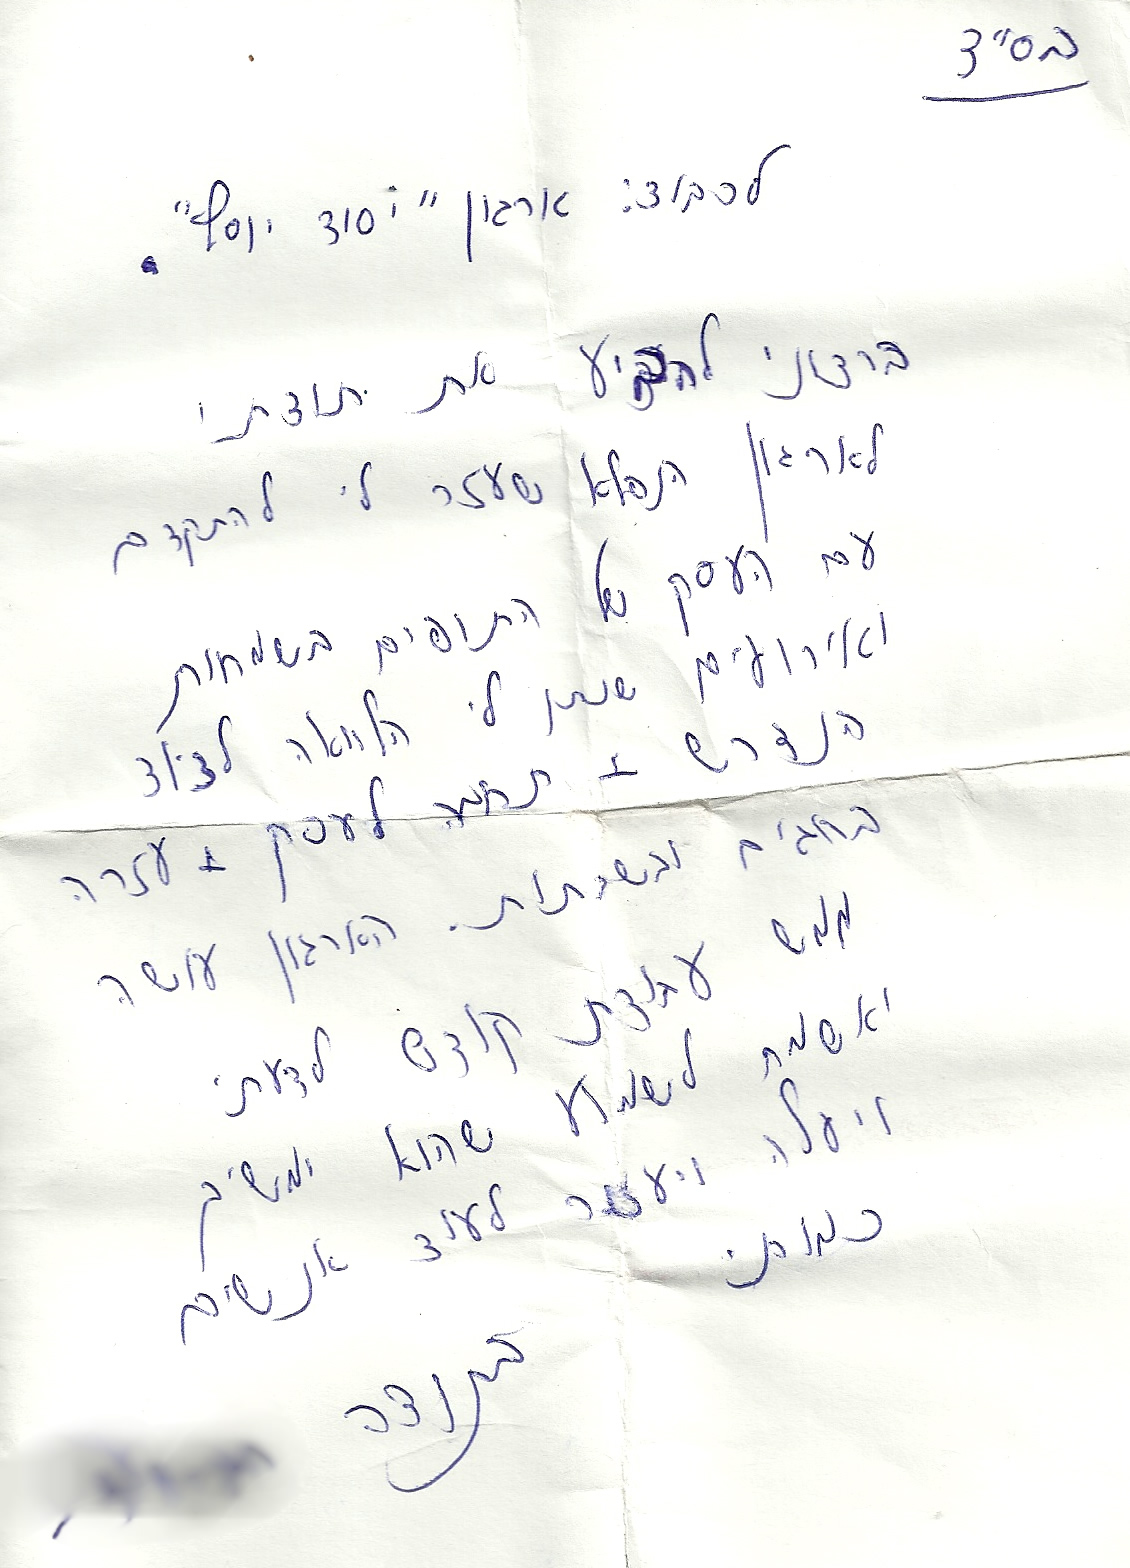 בס"ד
לכבוד: ארגון "יסוד יוסף".
ברצוני להביע את תודתי
לארגון הנפלא שעזר לי להתקדם
עם העסק של התופים בשמחות
ואירועים שנתן לי הלוואה לציוד
הנדרש + תרומה לעסק + עזרה
בחגים ובשבתות. הארגון עושה
ממש עבודת קודש לדעתי
ואשמח לשמוע שהוא ימשיך
ויעלה ויעזור לעוד אנשים
כמותי.
בתודה